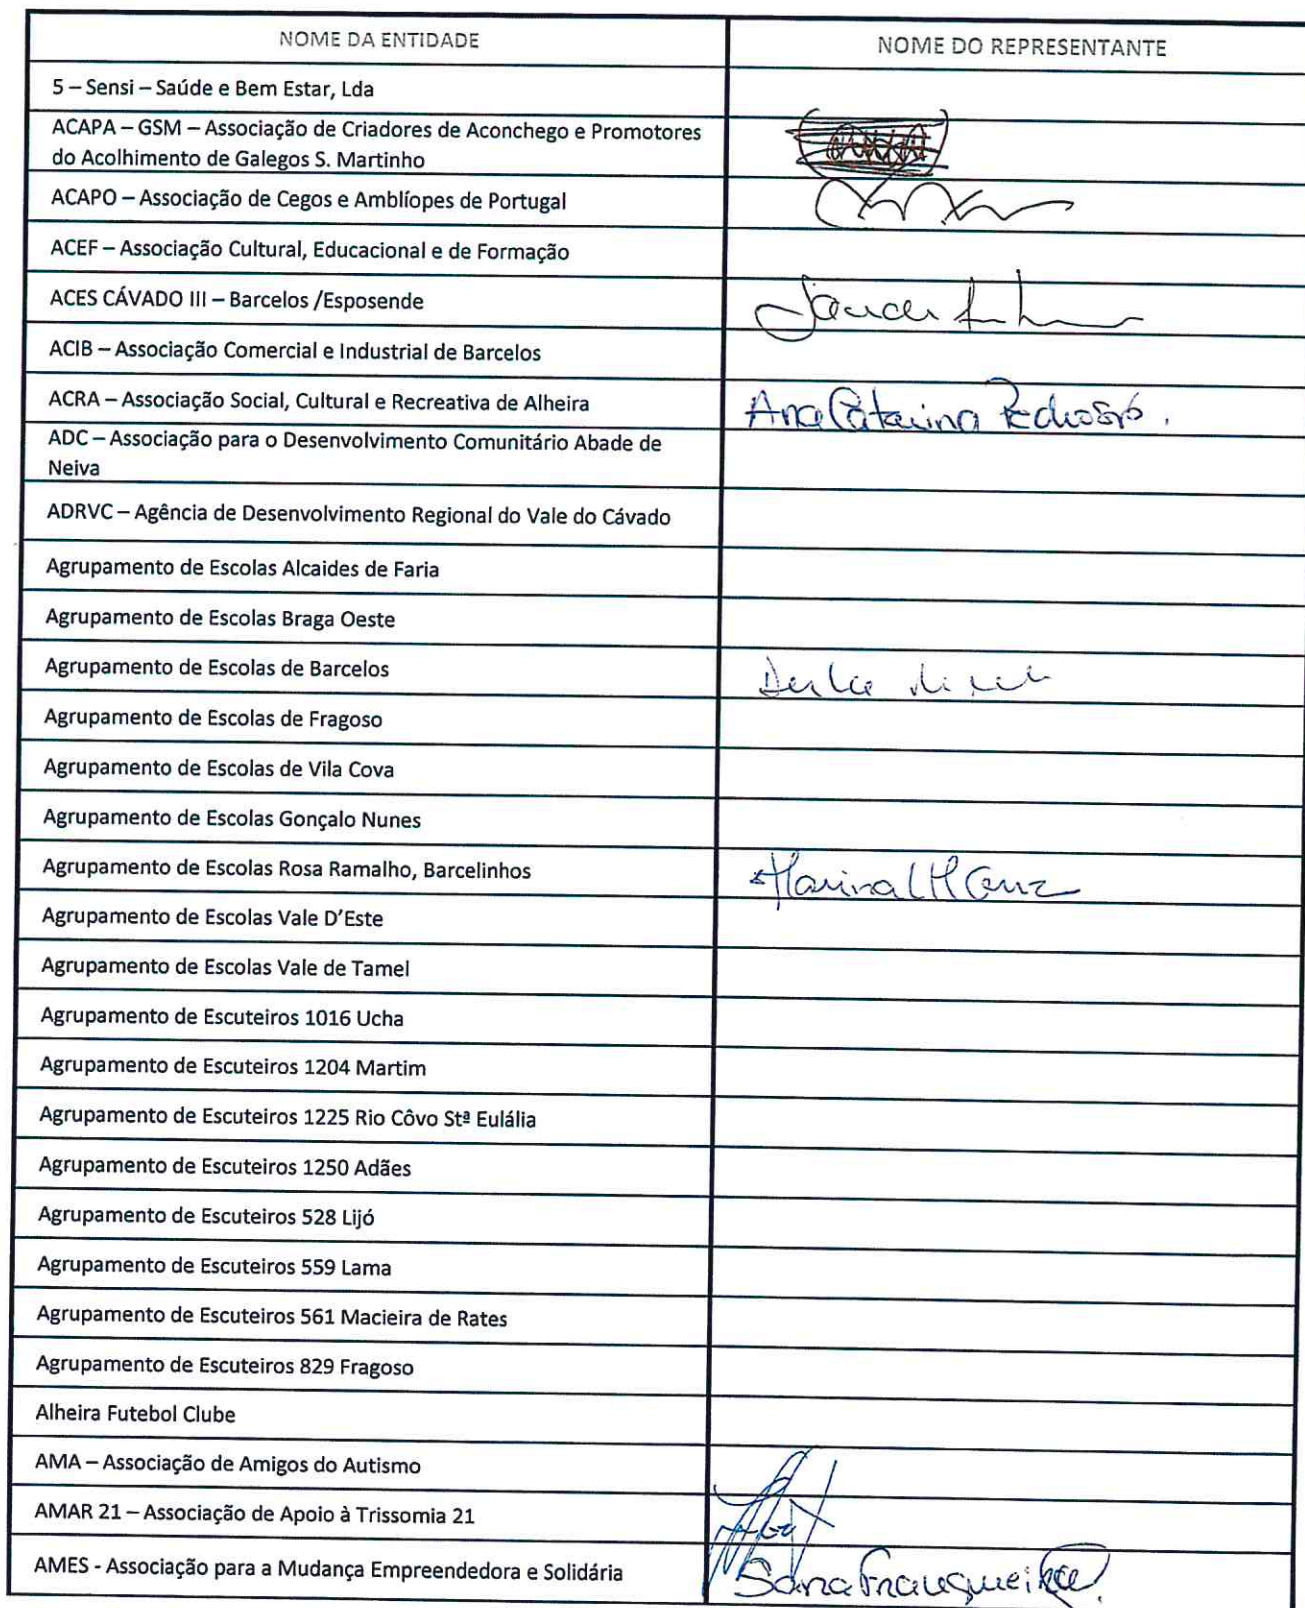 NOME DA ENTIDADE NOME DO REPRESENTANTE
5 – Sensi – Saúde e Bem Estar, Lda
ACAPA – GSM – Associação de Criadores de Aconchego e Promotores
do Acolhimento de Galegos S. Martinho
ACAPO – Associação de Cegos e Amblíopes de Portugal
ACEF – Associação Cultural, Educacional e de Formação
ACES CÁVADO III – Barcelos /Esposende
ACIB – Associação Comercial e Industrial de Barcelos
ACRA – Associação Social, Cultural e Recreativa de Alheira Ana Catarina
ADC – Associação para o Desenvolvimento Comunitário Abade de
Neiva
ADRVC – Agência de Desenvolvimento Regional do Vale do Cávado
Agrupamento de Escolas Alcaides de Faria
Agrupamento de Escolas Braga Oeste
Agrupamento de Escolas de Barcelos
Agrupamento de Escolas de Fragoso
Agrupamento de Escolas de Vila Cova
Agrupamento de Escolas Gonçalo Nunes
Agrupamento de Escolas Rosa Ramalho, Barcelinhos Marina
Agrupamento de Escolas Vale D'Este
Agrupamento de Escolas Vale de Tamel
Agrupamento de Escuteiros 1016 Ucha
Agrupamento de Escuteiros 1204 Martim
Agrupamento de Escuteiros 1225 Rio Côvo Stª Eulália
Agrupamento de Escuteiros 1250 Adães
Agrupamento de Escuteiros 528 Lijó
Agrupamento de Escuteiros 559 Lama
Agrupamento de Escuteiros 561 Macieira de Rates
Agrupamento de Escuteiros 829 Fragoso
Alheira Futebol Clube
AMA – Associação de Amigos do Autismo
AMAR 21 – Associação de Apoio à Trissomia 21
AMES - Associação para a Mudança Empreendedora e Solidária